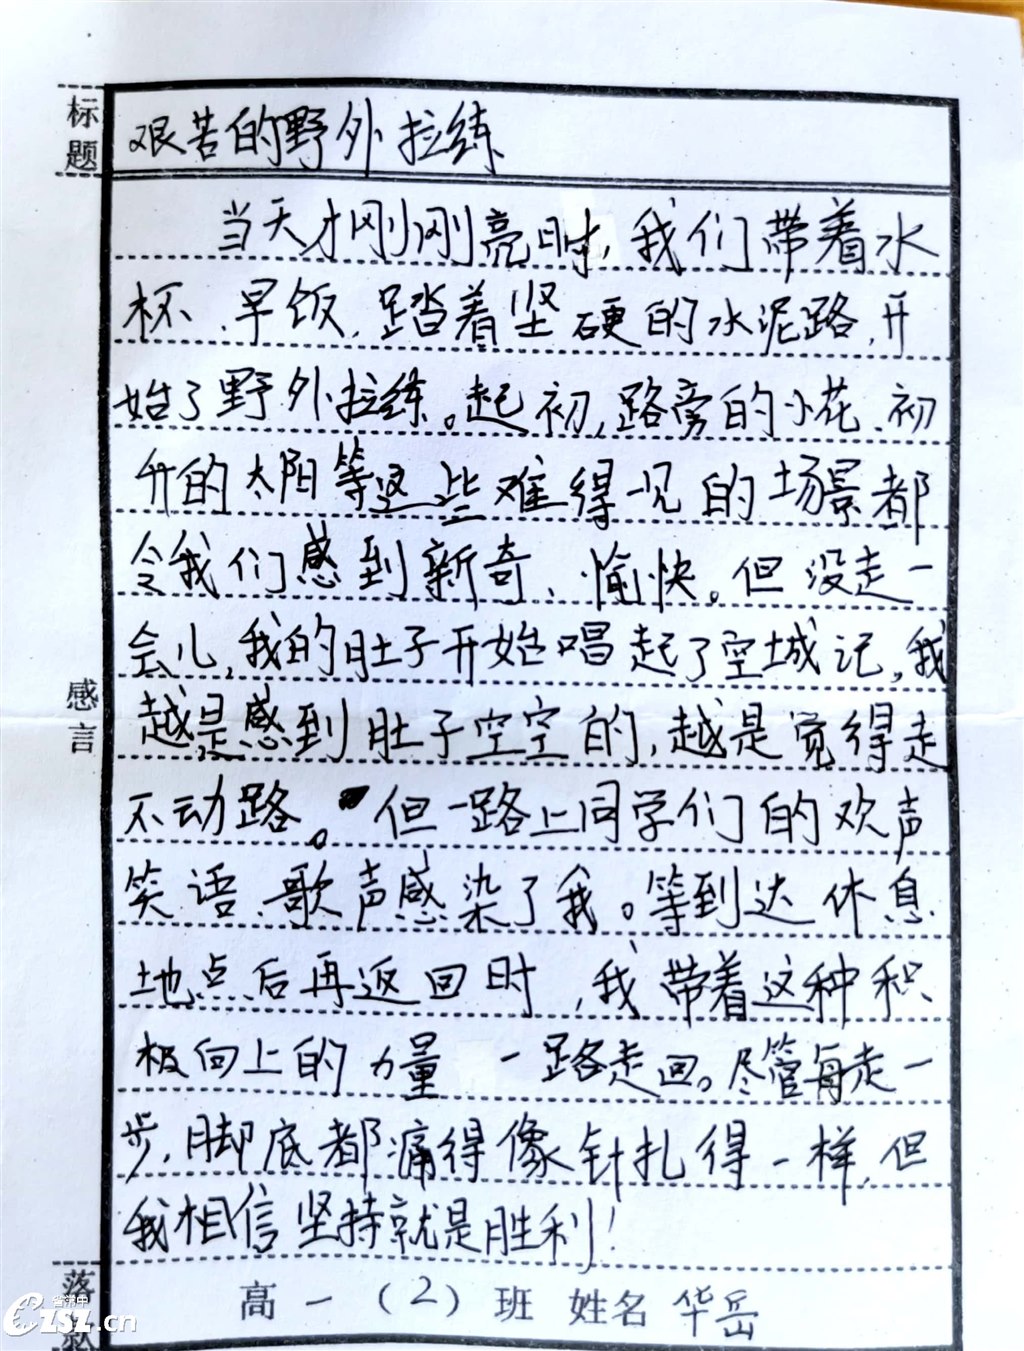 标题
艰苦的野外拉练
当天才刚刚亮时,我们带着水
杯、早饭,踏着坚硬的水泥路,开
始了野外拉练。起初,路旁的小花、初
升的太阳等这些难得一见的场景都
令我们感到新奇、愉快。但没走一
会儿,我的肚子开始唱起了空城记,我
越是感到肚子空空的,越是觉得走
不动路。但一路上同学们的欢声
笑语、歌声感染了我。等到达休息
地点后再返回时,我带着这种积
极向上的力量一路走回。尽管每走一
步,脚底都痛得像针扎得一样,但
我相信坚持就是胜利!
感言
落款
高一(2)班 姓名 华岳
省常中
CZSZ.cn